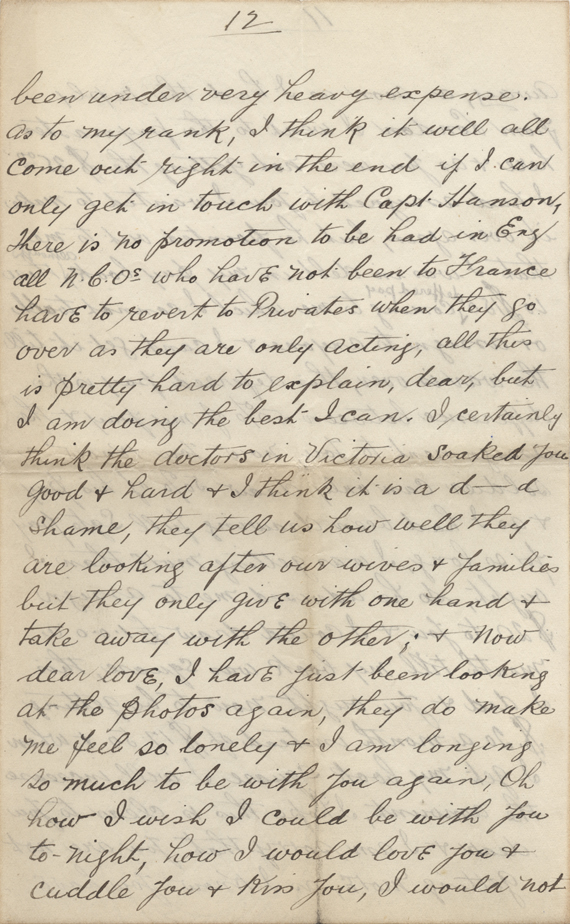 12
been under very heavy expense.
as to my rank, I think it will all
come out right in the end if I can
only get in touch with Capt Hanson,
There is no promotion to be had in Eng
all N.C.Os who havE not been to France
havE to revert to Privates when they go
over as they are only acting, all this
is pretty hard to explain, dear, but
I am doing the best I can. I certainly
think the doctors in Victoria soaked you
good & hard & I think it is a d—d
shame, they tell us how well they
are looking after our wives & families
but they only givE with one hand &
take away with the other; & Now
dear lovE, I havE just been looking
at the photos again, they do make
me feel so lonely & I am longing
so much to be with you again, Oh
how I wish I could be with you
to-night, how I would lovE you &
cuddle you & kiss you, I would not